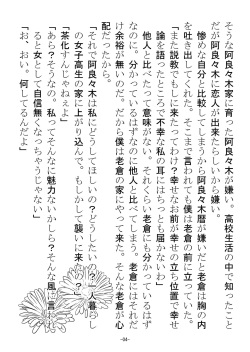 そうな阿良々木家に育った阿良々木が嫌い。高校生活の中で知ったこと
だが阿良々木に恋人が出来たらしいから嫌い。
惨めな自分と比較してしまうから阿良々木暦が嫌いだと老倉は胸の内
を吐き出してくれた。そこまで言われても僕は老倉の前に立っていた。
「また説教でもしに来たってわけ？幸せなお前が幸せの立ち位置で幸せ
論を語ったところで不幸な私の耳にはちっとも届かないわ」
他人と比べたって意味がない。それぐらい老倉にも分かっているはず
なのに。分かっているはずなのに他人と比べてしまう。老倉にはそれだ
け余裕が無いのだ。だから僕は老倉の家にやって来た。そんな老倉が心
配だったから。
「それで阿良々木は私にどうしてほしいの？どうしたい　　？一人暮らし
の女子高生の家に上がり込んで、もしかして襲いに来　　？」
「茶化すんじゃねぇよ」
「あら？そうなの。私ってそんなに魅力ないかしら？そんな風に言
ると女として自信無くなっちゃうじゃない」
「お、おい。何してるんだよ」
-04-